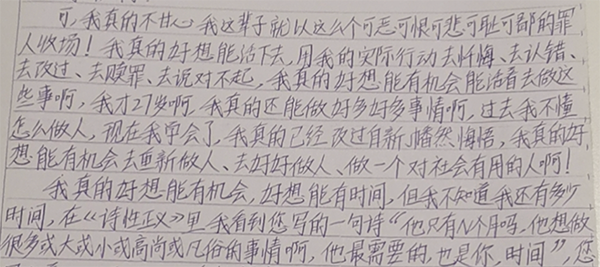 可我真的不甘心我这辈子就以这么个可恶可恨可悲可耻可鄙的罪
人收场！我真的好想能活下去，用我的实际行动去忏悔、去认错、
去改过、去赎罪、去说对不起，我真的好想能有机会能活着去做这
些事啊，我才27岁啊，我真的还能做好多好多事情啊，过去我不懂
怎么做人，现在我学会了，我真的已经改过自新、幡然悔悟，我真的好
想能有机会去重新做人、去好好做人、做一个对社会有用的人啊！
我真的好想能有机会，好想能有时间，但我不知道我还有多少
时间，在《诗性正义》里我看到您写的一句诗“他只有N个月吗，他想做
很多或大或小或高尚或凡俗的事情啊，他最需要的，也是你，时间”，您